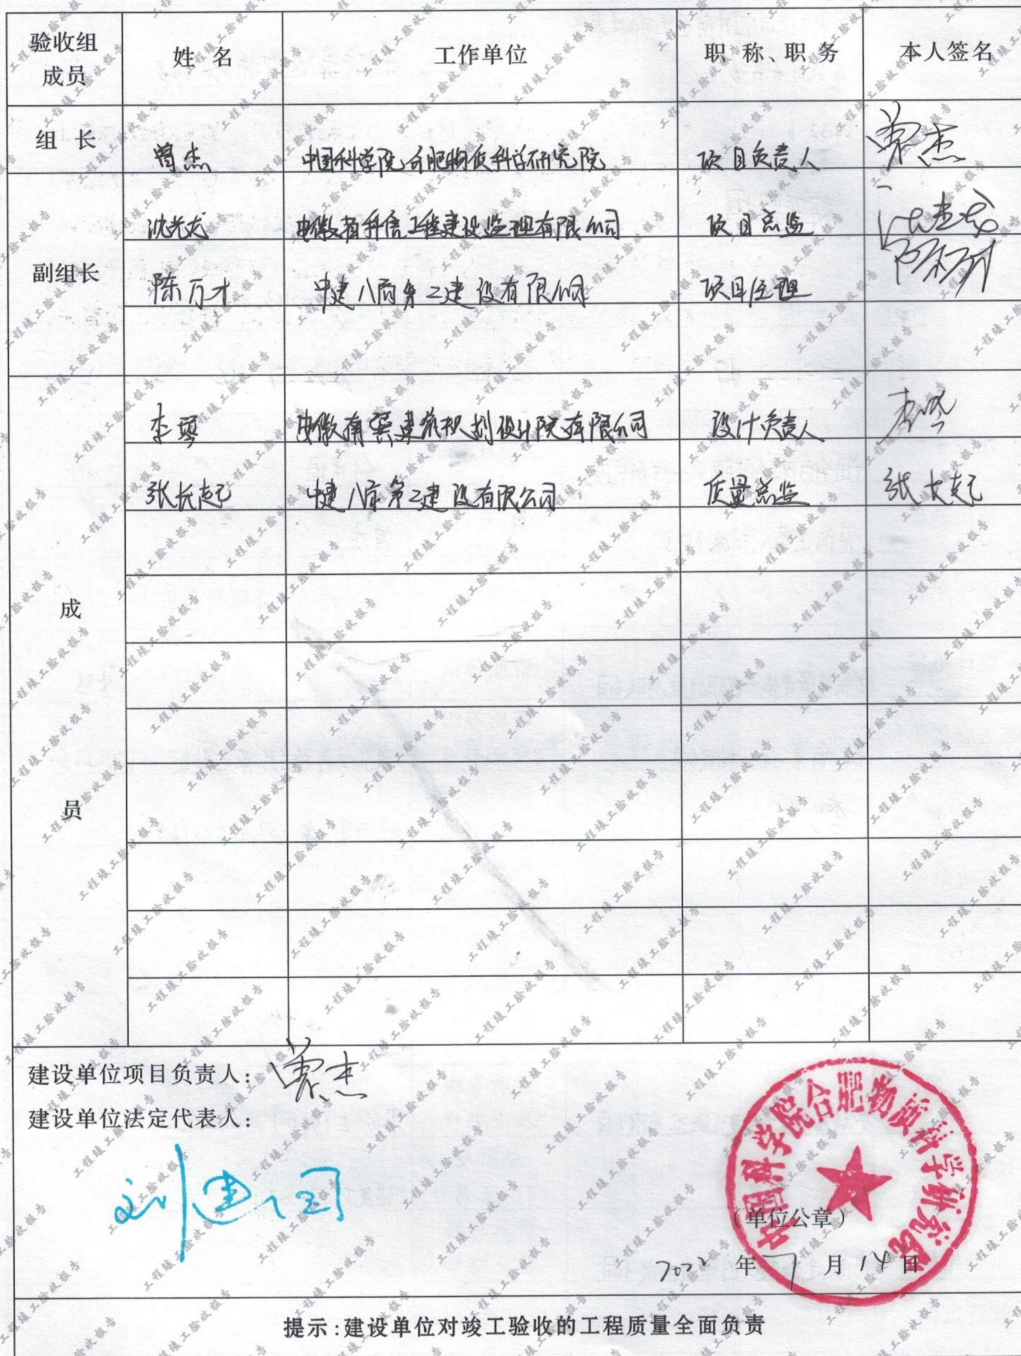 验收组成员 姓 名 工作单位 职 称、职 务 本人签名
组 长 曾杰 中国科学院合肥物质科学研究院 项目负责人 曾杰
副组长 沈光龙 安徽省科信工程建设监理有限公司 项目总监
陈万才 中建八局第二建设有限公司 项目经理
成 员 李 安徽省 建筑规划设计院有限公司 设计负责人
张长起 中建八局第二建设有限公司 质量总监 张长起
建设单位项目负责人: 曾杰
建设单位法定代表人:
刘建国
中国科学院合肥物质科学研究院
(单位公章)
2022 年 7 月 14 日
提示:建设单位对竣工验收的工程质量全面负责
工程竣工验收报告